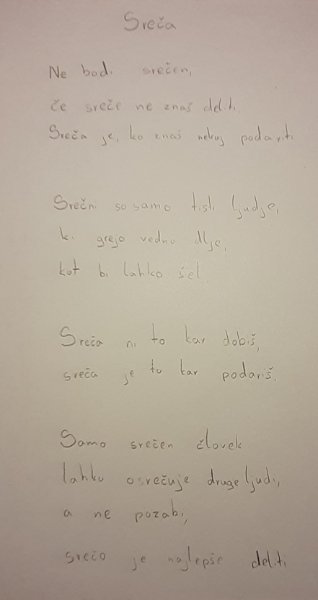 Sreča
Ne bodi srečen,
če sreče ne znaš deliti.
Sreča je, ko znaš nekaj podariti.
Srečni so samo tisti ljudje,
ki grejo vedno dlje,
kot bi lahko šel.
Sreča ni to kar dobiš,
sreča je to kar podariš.
Samo srečen človek
lahko osrečuje druge ljudi,
a ne pozabi,
srečo je najlepše deliti